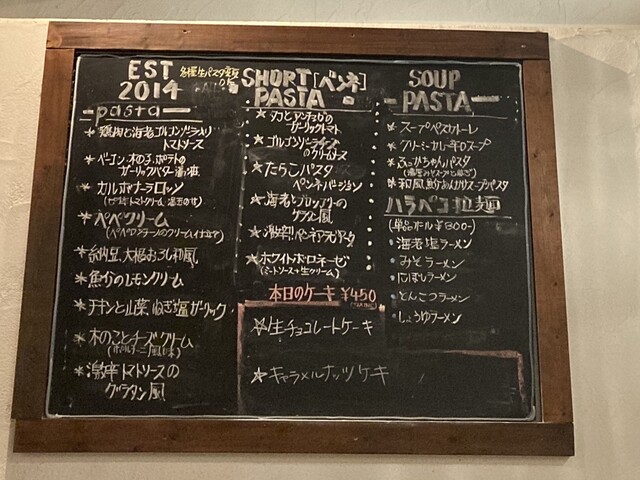 EST
2014
pasta
トマトソース
ベーコン、木のこ、ポテトの
カルボナーラロッソ
ペペクリーム
納豆、大根おろし和風
魚介のレモンクリーム
チキンと山菜、ねぎ塩ガーリック
木のことチーズクリーム
激辛トマトソースの
グラタン風
SHORT [ペンネ]
PASTA
ガーリックトマト
ゴルゴンゾーラチーズ
のクリームソース
たらこパスタ
ペンネバージョン
海老とブロッコリーの
グラタン風
激辛!!ペンネアラビアータ
ホワイトボロネーゼ
(ミートソース+生クリーム)
本日のケーキ ¥450
生チョコレートケーキ
キャラメルナッツケーキ
SOUP
PASTA
スープペスカトーレ
クリーミーカレー羊のスープ
ふっかちゃんパスタ
ハラペコ拉麺
(単品オール¥800-)
海老塩ラーメン
みそラーメン
にぼしラーメン
とんこつラーメン
しょうゆラーメン